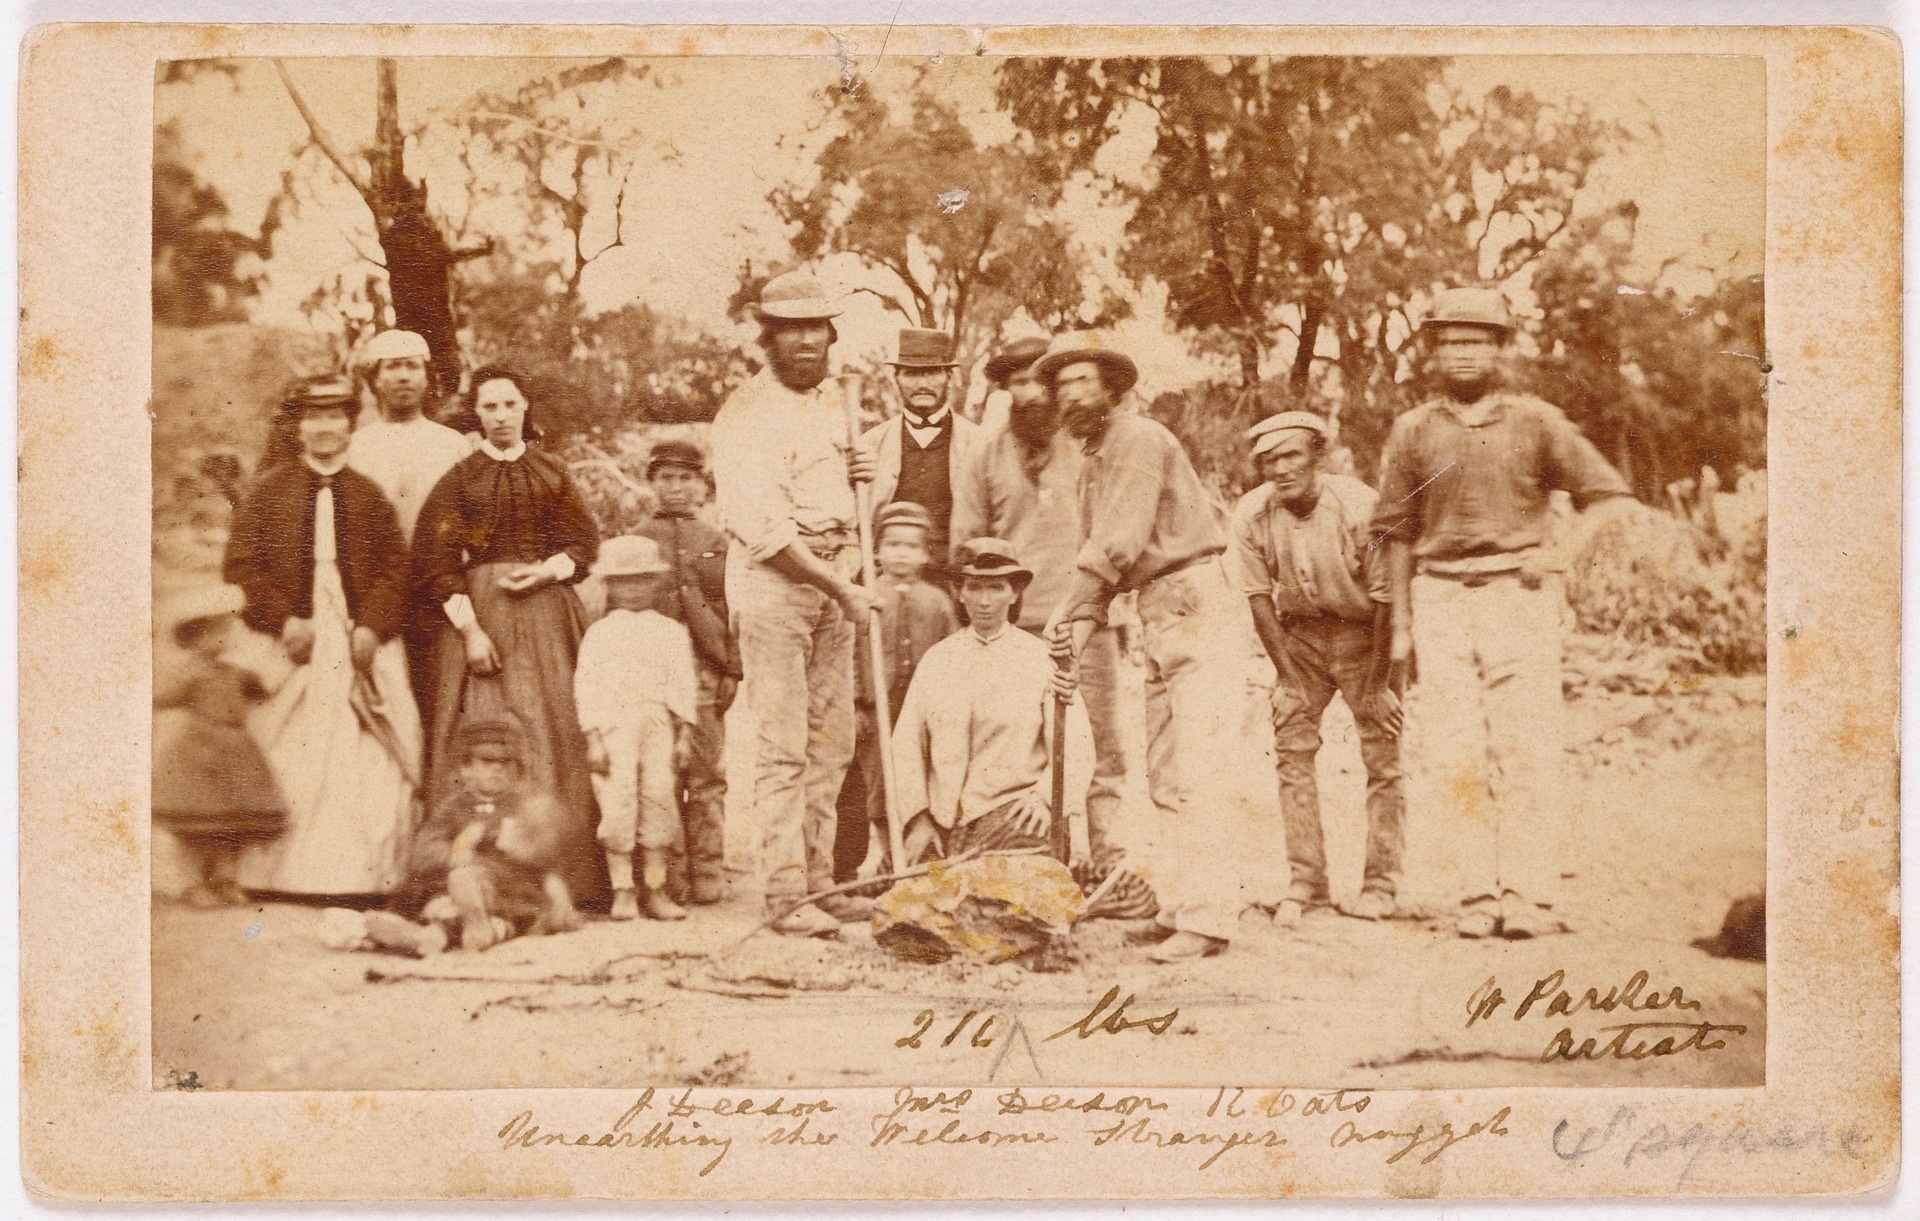 216 lbs
W Parker
Artist
J Deeson Mrs Deeson R Oats
Unearthing the Welcome Stranger nugget
4" square